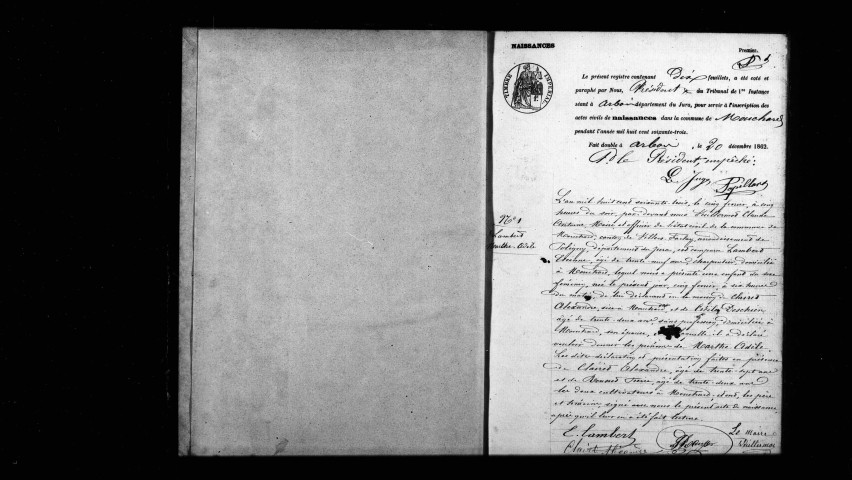 NAISSANCES
Premier.
TIMBRE IMPÉRIAL
Le présent registre contenant Dix feuillets, a été coté et
paraphé par Nous, Président du Tribunal de 1re Instance
séant à Arbois département du Jura, pour servir à l'inscription des
actes civils de naissances dans la commune de Mouchard
pendant l'année mil huit cent soixante-trois.
Fait double à Arbois, le 20 décembre 1862.
P. le Président, empêché:
Le Juge
N° 1
Lambert
Marthe-Adèle
L'an mil huit cent soixante trois, le cinq février, à cinq
heures du soir, par devant nous Vuillermoz Claude
Antoine, Maire et officier de l'état civil de la commune de
Mouchard, canton de Villers-Farlay, arrondissement de
Poligny, département du Jura, est comparu Lambert
Etienne, âgé de trente-neuf ans, charpentier, domicilié
à Mouchard, lequel nous a présenté une enfant du sexe
féminin, née le présent jour, cinq février, à six heures
du matin, de lui déclarant en la maison de Clairet
Alexandre, sise à Mouchard et de
âgée de trente-deux ans, sans profession, domiciliée à
Mouchard, son épouse, laquelle il a déclaré
vouloir donner les prénoms de Marthe Adèle.
Les dites déclaration et présentation faites en présence
de Clairet Alexandre, âgé de trente-sept ans
et de Pierre, âgé de trente-deux ans
les deux cultivateurs à Mouchard; et ont, les père
et témoins, signé avec nous le présent acte de naissance
après qu'il leur en a été fait lecture.
E. Lambert
Le Maire
Clairet Alexandre
Vuillermoz